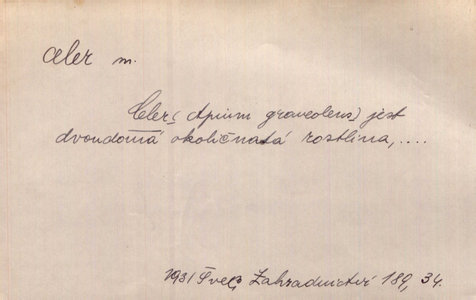 celer m.
Celer (Apium graveolens) jest
dvoudomá okoličnatá rostlina,....
1931 Švec, Zahradnictví 189, 34.